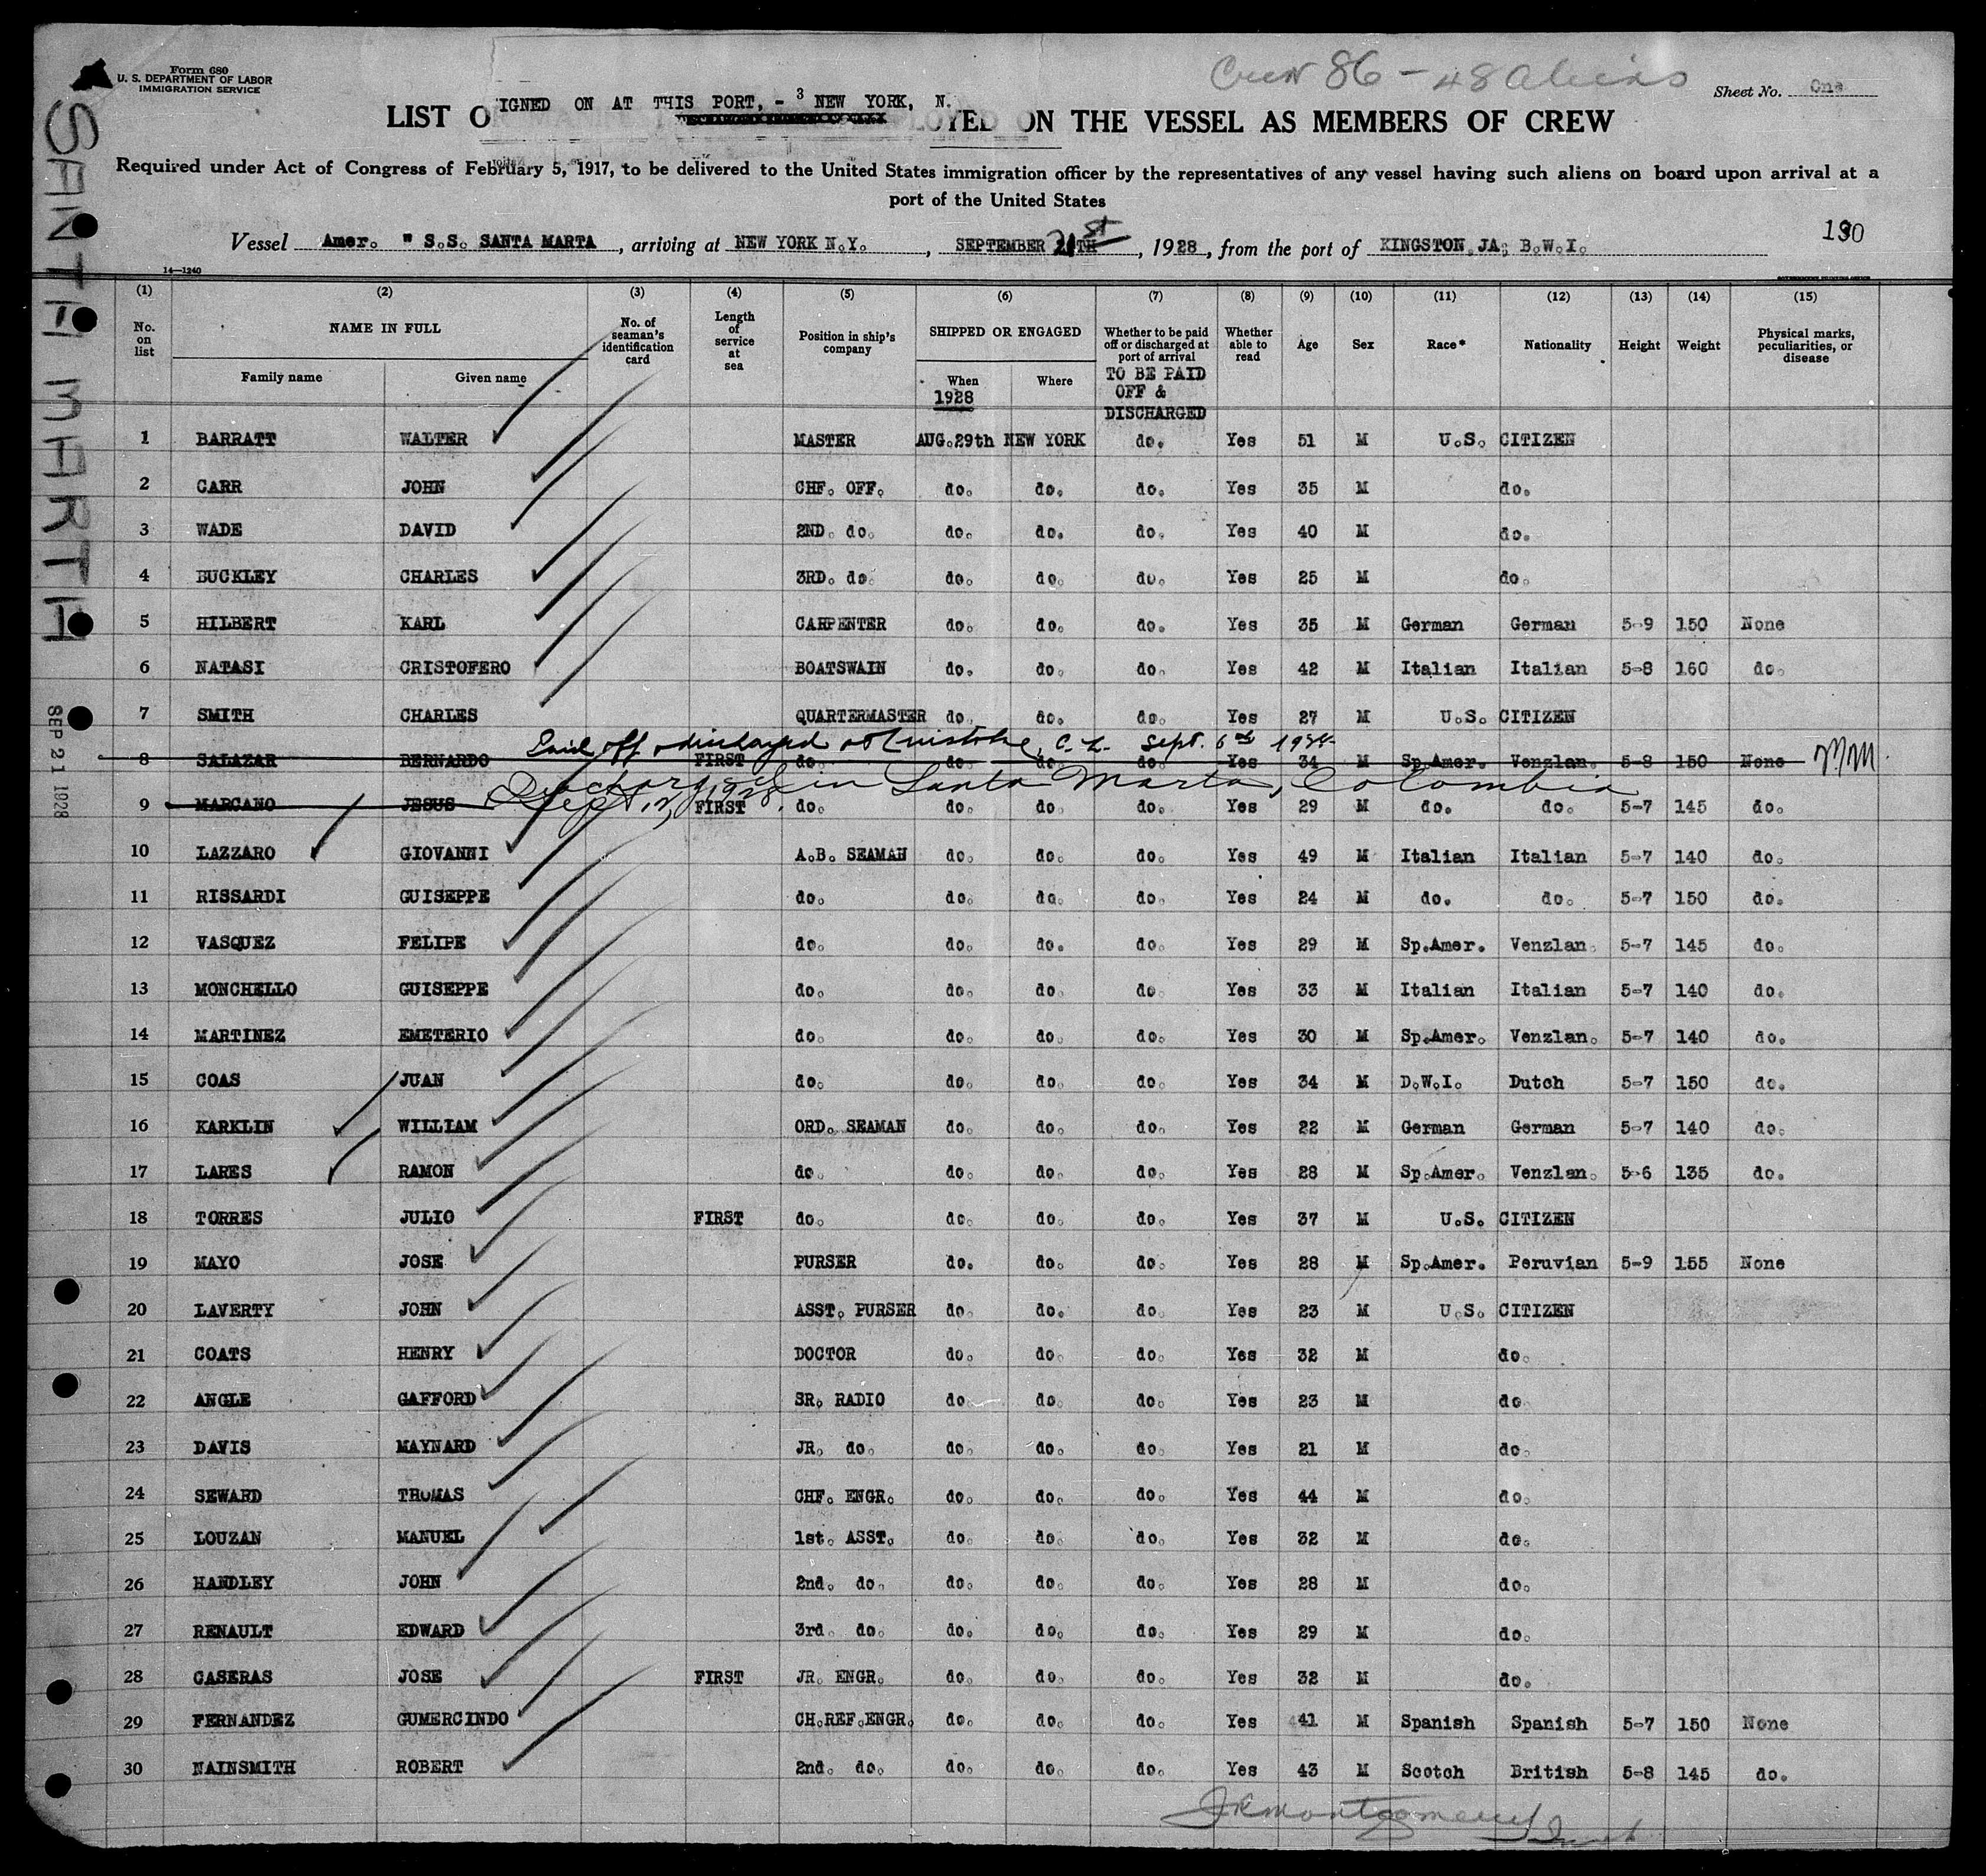 Form 680
U. S. DEPARTMENT OF LABOR
IMMIGRATION SERVICE
Crew 86 - 48 Aliens
Sheet No. One
IGNED ON AT THIS PORT, - 3 NEW YORK, N.
LIST O OYED ON THE VESSEL AS MEMBERS OF CREW
Required under Act of Congress of February 5, 1917, to be delivered to the United States immigration officer by the representatives of any vessel having such aliens on board upon arrival at a
port of the United States
Vessel Amer. " S.S. SANTA MARTA, arriving at NEW YORK N.Y., SEPTEMBER 21st, 1928, from the port of KINGSTON, JA; B.W.I.
130
14-1240
SANTA MARTA
SEP 21 1928
(1) (2) (3) (4) (5) (6) (7) (8) (9) (10) (11) (12) (13) (14) (15)
No. on list NAME IN FULL Family name Given name No. of seaman's identification card Length of service at sea Position in ship's company SHIPPED OR ENGAGED When 1928 Where Whether to be paid off or discharged at port of arrival TO BE PAID OFF & DISCHARGED Whether able to read Age Sex Race* Nationality Height Weight Physical marks, peculiarities, or disease
1 BARRATT WALTER MASTER AUG.29th NEW YORK do. Yes 51 M U.S. CITIZEN
2 CARR JOHN CHF. OFF. do. do. do. Yes 35 M do.
3 WADE DAVID 2ND. do. do. do. do. Yes 40 M do.
4 BUCKLEY CHARLES 3RD. do. do. do. do. Yes 25 M do.
5 HILBERT KARL CARPENTER do. do. do. Yes 35 M German German 5-9 150 None
6 NATASI CRISTOFERO BOATSWAIN do. do. do. Yes 42 M Italian Italian 5-8 160 do.
7 SMITH CHARLES QUARTERMASTER do. do. do. Yes 27 M U.S. CITIZEN
Paid off & discharged at Cristobal, C.Z. Sept. 6th 1928
8 SALAZAR BERNARDO FIRST do. do. do. do. Yes 34 M Sp.Amer. Venzlan. 5-8 150 None
Discharged in Santa Marta, Colombia
Sept. 1928.
9 MARCANO JESUS FIRST do. do. do. do. Yes 29 M do. do. 5-7 145 do.
10 LAZZARO GIOVANNI A.B. SEAMAN do. do. do. Yes 49 M Italian Italian 5-7 140 do.
11 RISSARDI GUISEPPE do. do. do. do. Yes 24 M do. do. 5-7 150 do.
12 VASQUEZ FELIPE do. do. do. do. Yes 29 M Sp.Amer. Venzlan. 5-7 145 do.
13 MONCHELLO GUISEPPE do. do. do. do. Yes 33 M Italian Italian 5-7 140 do.
14 MARTINEZ EMETERIO do. do. do. do. Yes 30 M Sp.Amer. Venzlan. 5-7 140 do.
15 COAS JUAN do. do. do. do. Yes 34 M D.W.I. Dutch 5-7 150 do.
16 KARKLIN WILLIAM ORD. SEAMAN do. do. do. Yes 22 M German German 5-7 140 do.
17 LARES RAMON do. do. do. do. Yes 28 M Sp.Amer. Venzlan. 5-6 135 do.
18 TORRES JULIO FIRST do. do. do. do. Yes 37 M U.S. CITIZEN
19 MAYO JOSE PURSER do. do. do. Yes 28 M Sp.Amer. Peruvian 5-9 155 None
20 LAVERTY JOHN ASST. PURSER do. do. do. Yes 23 M U.S. CITIZEN
21 COATS HENRY DOCTOR do. do. do. Yes 32 M do.
22 ANGLE GAFFORD SR. RADIO do. do. do. Yes 23 M do.
23 DAVIS MAYNARD JR. do. do. do. do. Yes 21 M do.
24 SEWARD THOMAS CHF. ENGR. do. do. do. Yes 44 M do.
25 LOUZAN MANUEL 1st. ASST. do. do. do. Yes 32 M do.
26 HANDLEY JOHN 2nd. do. do. do. do. Yes 28 M do.
27 RENAULT EDWARD 3rd. do. do. do. do. Yes 29 M do.
28 CASERAS JOSE FIRST JR. ENGR. do. do. do. Yes 32 M do.
29 FERNANDEZ GUMERCINDO CH.REF.ENGR. do. do. do. Yes 41 M Spanish Spanish 5-7 150 None
30 NAINSMITH ROBERT 2nd. do. do. do. do. Yes 43 M Scotch British 5-8 145 do.
JRMontgomery